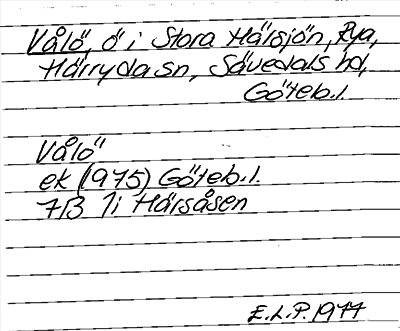 Vålö, ö i Stora Härsjön, Rya,
Härryda sn, Sävedals hd,
Göteb.l.
Vålö
ek (1975) Göteb.l.
7B 1i Härsåsen
E.L.P. 1977